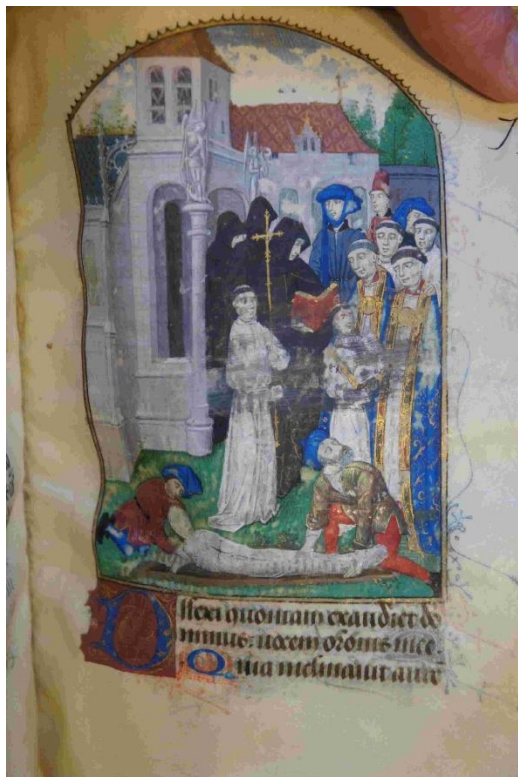 Dilexi quoniam exaudiet do
minus: vocem oronis mee.
Quia inclinavit aure